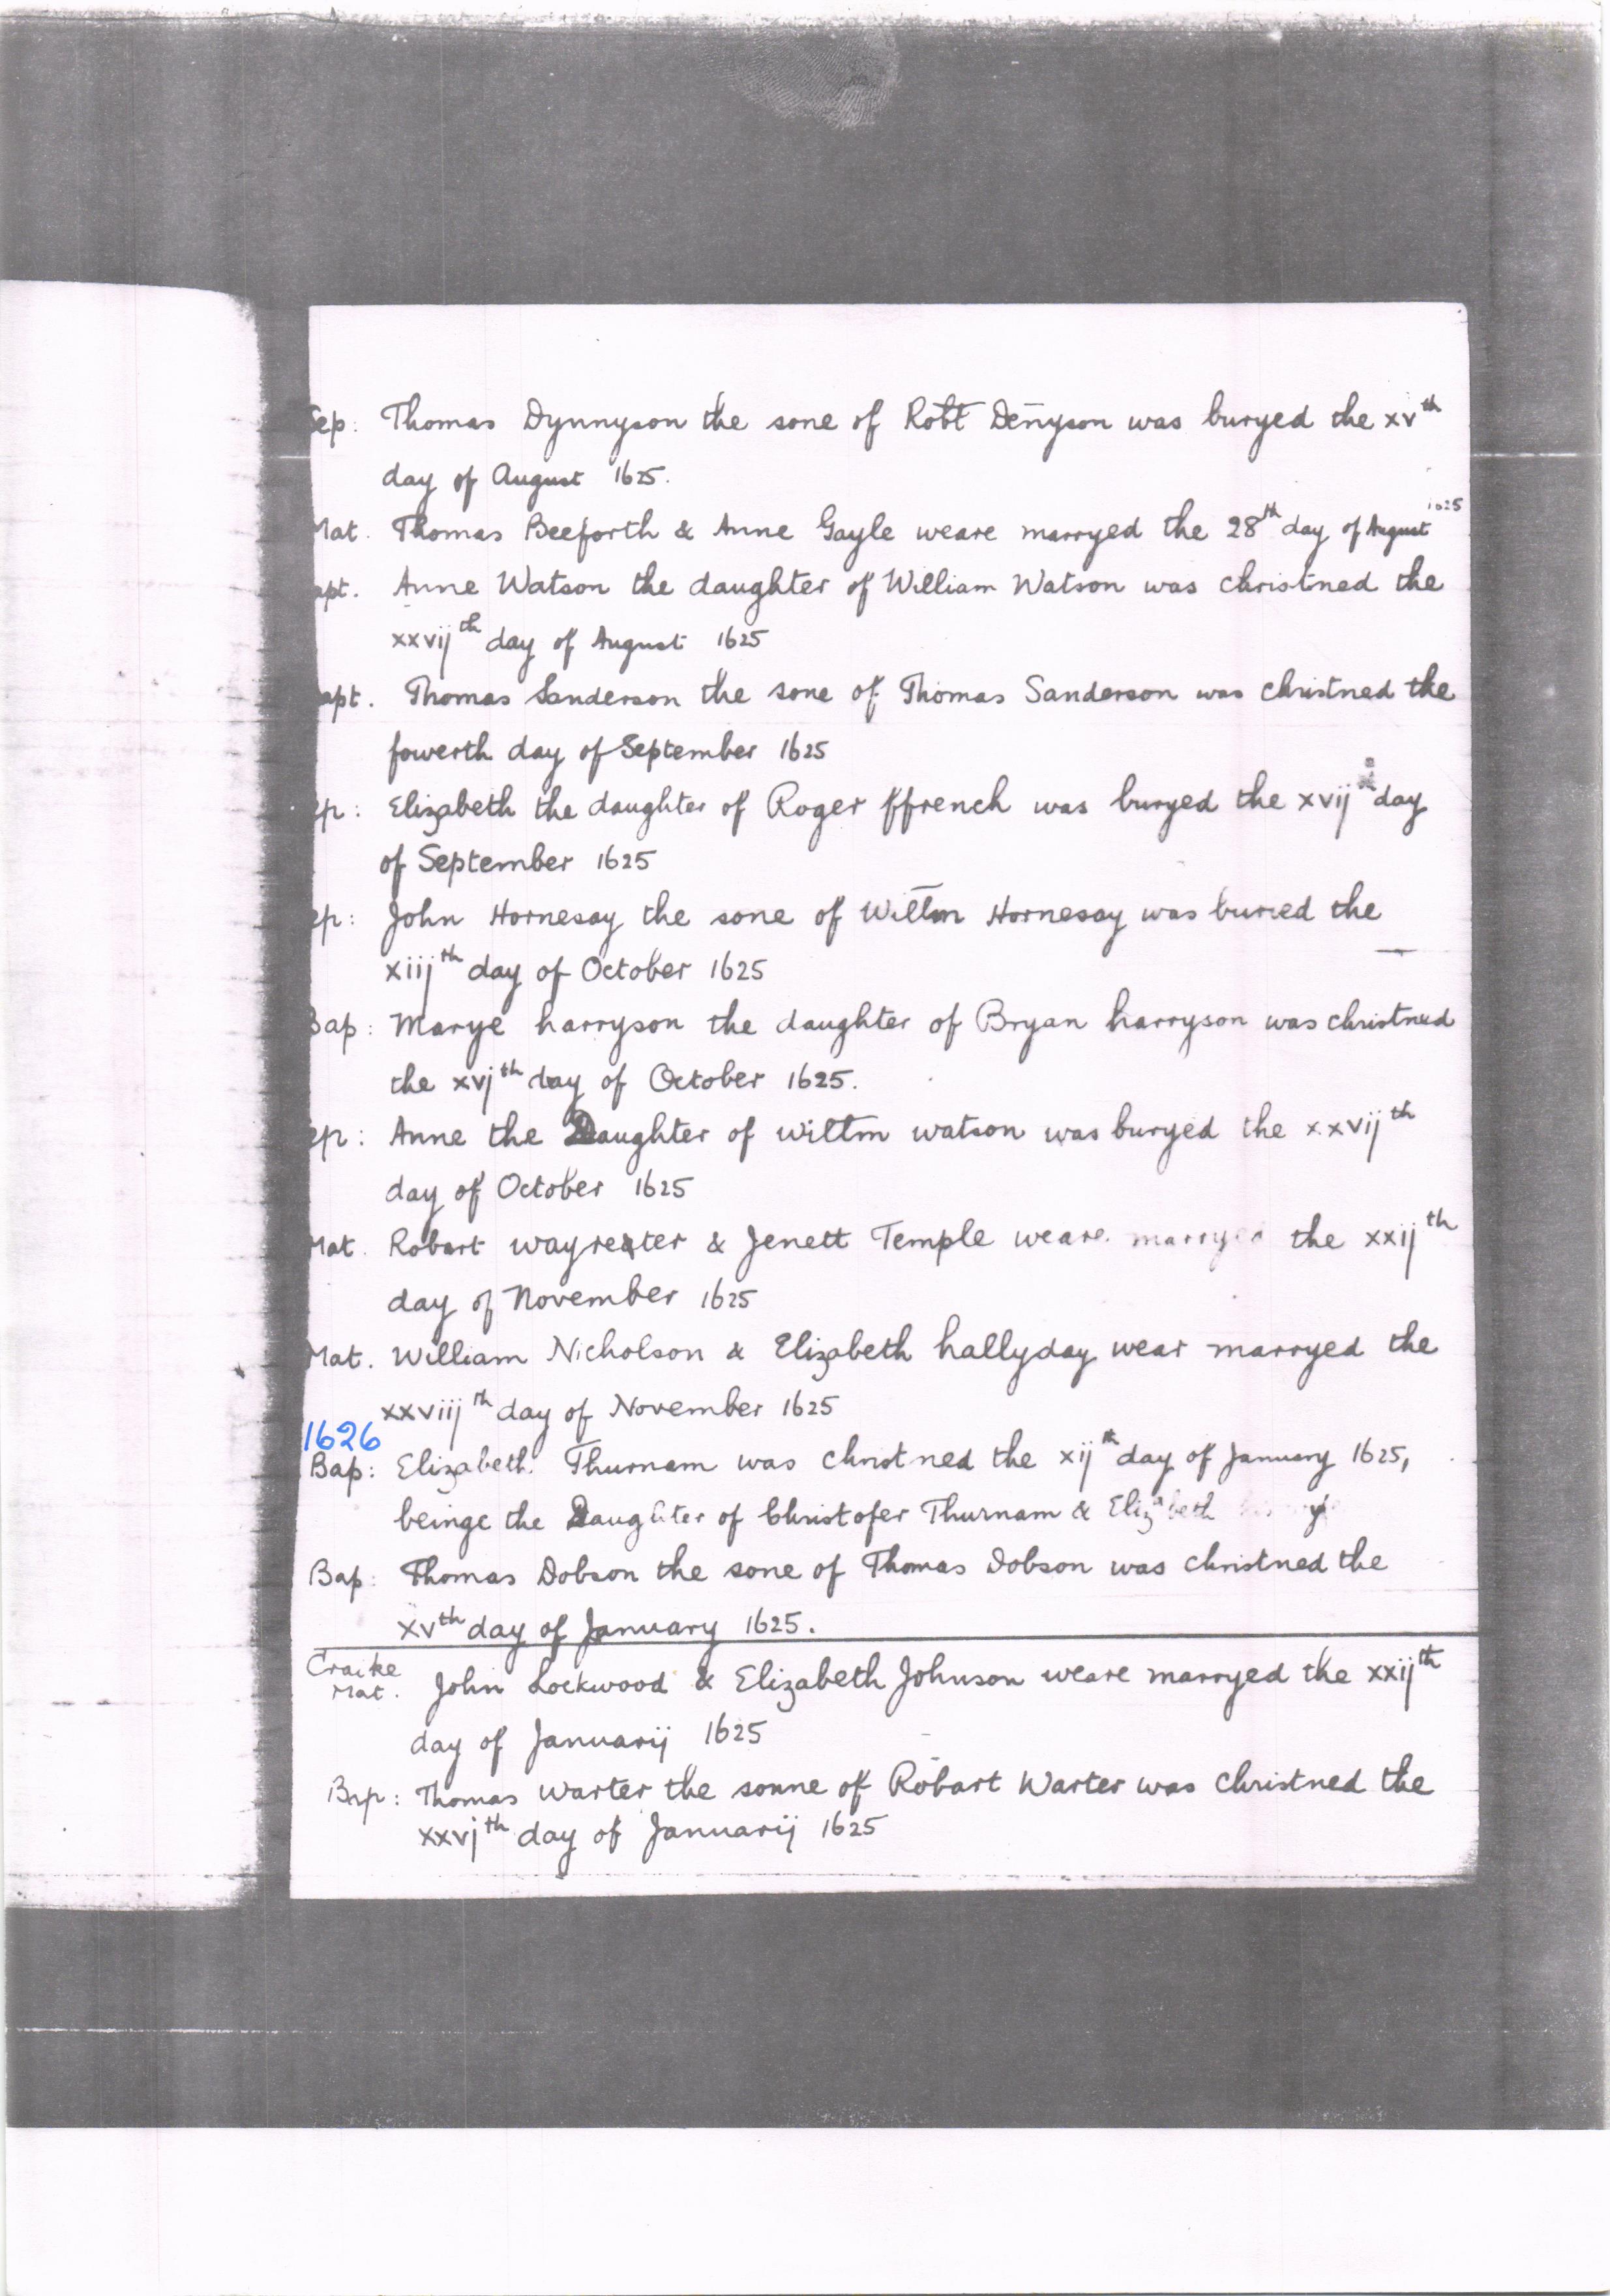 Sep: Thomas Dynnyson the sone of Robt Denyson was buryed the xvth
day of August 1625.
Mat. Thomas Beeforth & Anne Gayle weare marryed the 28th day of August 1625
apt. Anne Watson the daughter of William Watson was christned the
xxvijth day of August 1625
apt. Thomas Sanderson the sone of Thomas Sanderson was christned the
fowerth day of September 1625
ep: Elizabeth the daughter of Roger ffrench was buryed the xvijth day
of September 1625
ep: John Hornesay the sone of Willm Hornesay was buried the
xiijth day of October 1625
Bap: Marye harryson the daughter of Bryan harryson was christned
the xvjth day of October 1625.
ep: Anne the Daughter of willm watson was buryed the xxvijth
day of October 1625
Mat. Robart & Jenett Temple weare marryed the xxijth
day of November 1625
Mat. William Nicholson & Elizabeth hallyday wear marryed the
xxviijth day of November 1625
1626
Bap: Elizabeth Thurnam was christned the xijth day of January 1625,
beinge the Daughter of Christofer Thurnam & Elizabeth
Bap: Thomas Dobson the sone of Thomas Dobson was christned the
xvth day of January 1625.
Craike
Mat. John Lockwood & Elizabeth Johnson weare marryed the xxijth
day of Januarij 1625
Bap: Thomas Warter the sonne of Robart Warter was christned the
xxvjth day of Januarij 1625